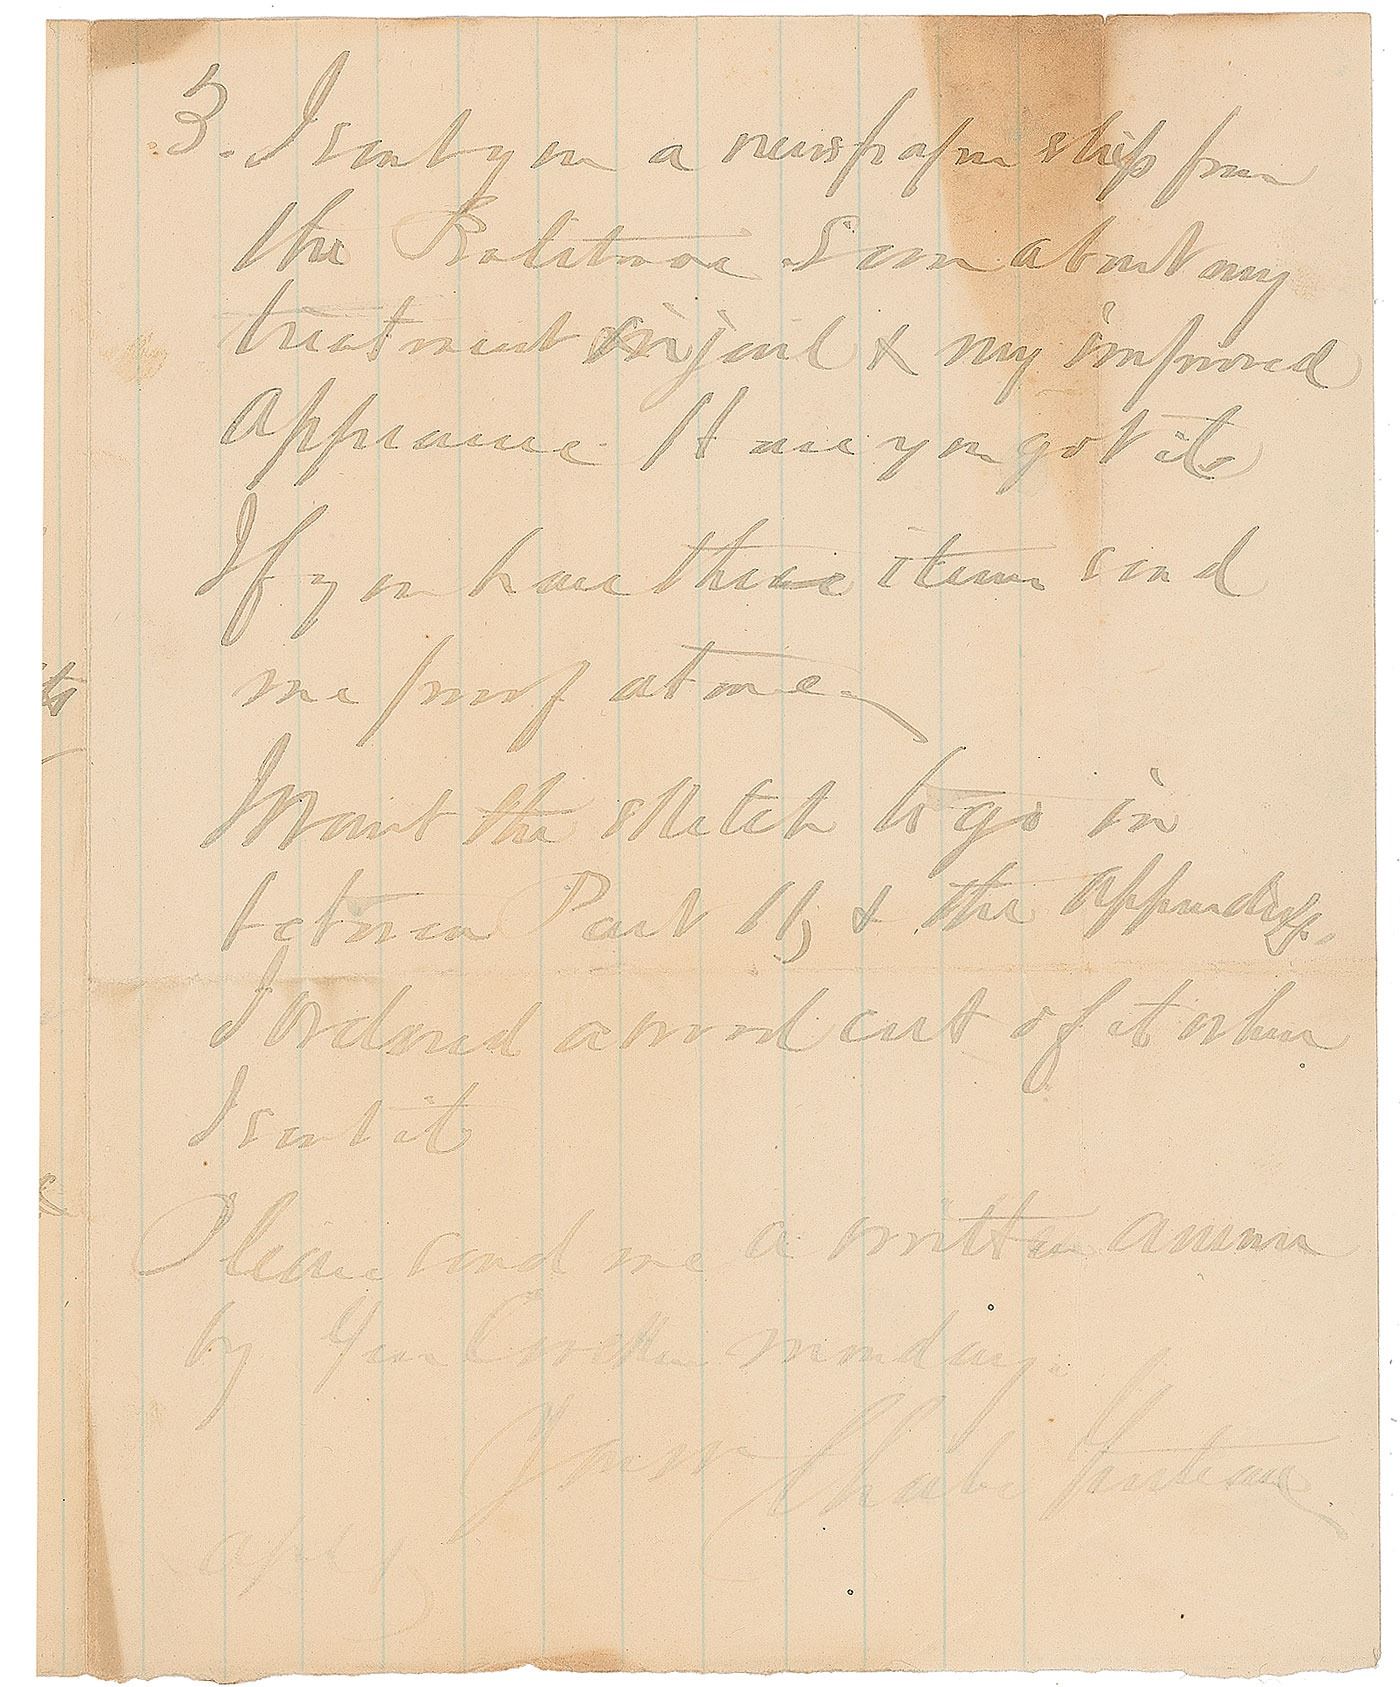 3. I sent you a newspaper slip from
the Baltimore Sun about my
treatment in jail & my improved
appearance. Have you got it
If you have these items send
me proof at once.
I want the sketch to go in
between Part II, & the appendix.
I ordered a wood cut of it when
I sent it
Please send me a written answer
by Gen Crocker monday.
Yours Charles Guiteau